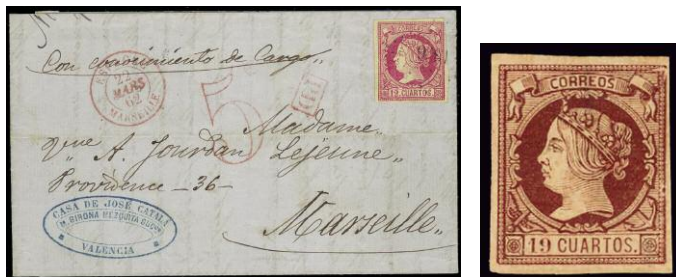 Con conocimiento de Cargo
ESP
22
MARS
62
MARSEILLE
5
PD
19 CUARTOS.
Madame
A. Jourdan Lejeune
Providence - 36 -
Marseille
CASA DE JOSÉ CATALÁ
VALENCIA
CORREOS
19 CUARTOS.